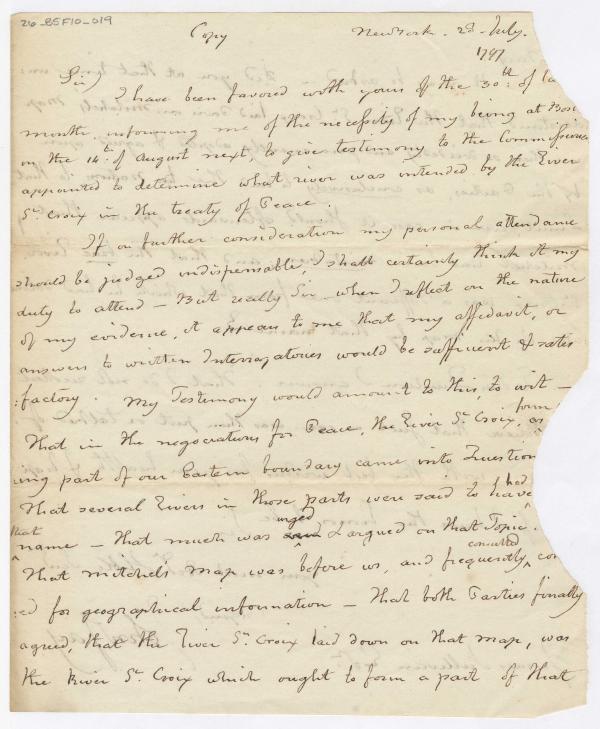 26-B5F10-019
Copy
New York. 2d July.
1797
Sir, I have been favored with yours of the 30th. of la
month, informing me of the necessity of my being at Bos
on the 14th. of August next, to give testimony to the Commissione
appointed to detemine what river was intended by the River
St. Croix in the treaty of Peace.
If on further consideration my personal attendance
should be judged indispensable, I shall certainly think it my
duty to attend — But really Sir when I reflect on the nature
of my evidence, it appears to me that my affidavit, or
answers to written Interrogatories would be sufficient & satis
:factory. My Testimony would amount to this, to wit —
That in the negociations for Peace, the River St. Croix, form
ing part of our Eastern boundary came into Question
as
That several Rivers in those parts were said to have had
that
name — That much was urged & argued on that Topic.
That mitchels map was before us, and frequently consulted
:ed for geographical information — That both Parties finally
agreed, that the River St. Croix laid down on that map, was
the River St. Croix which ought to form a part of that